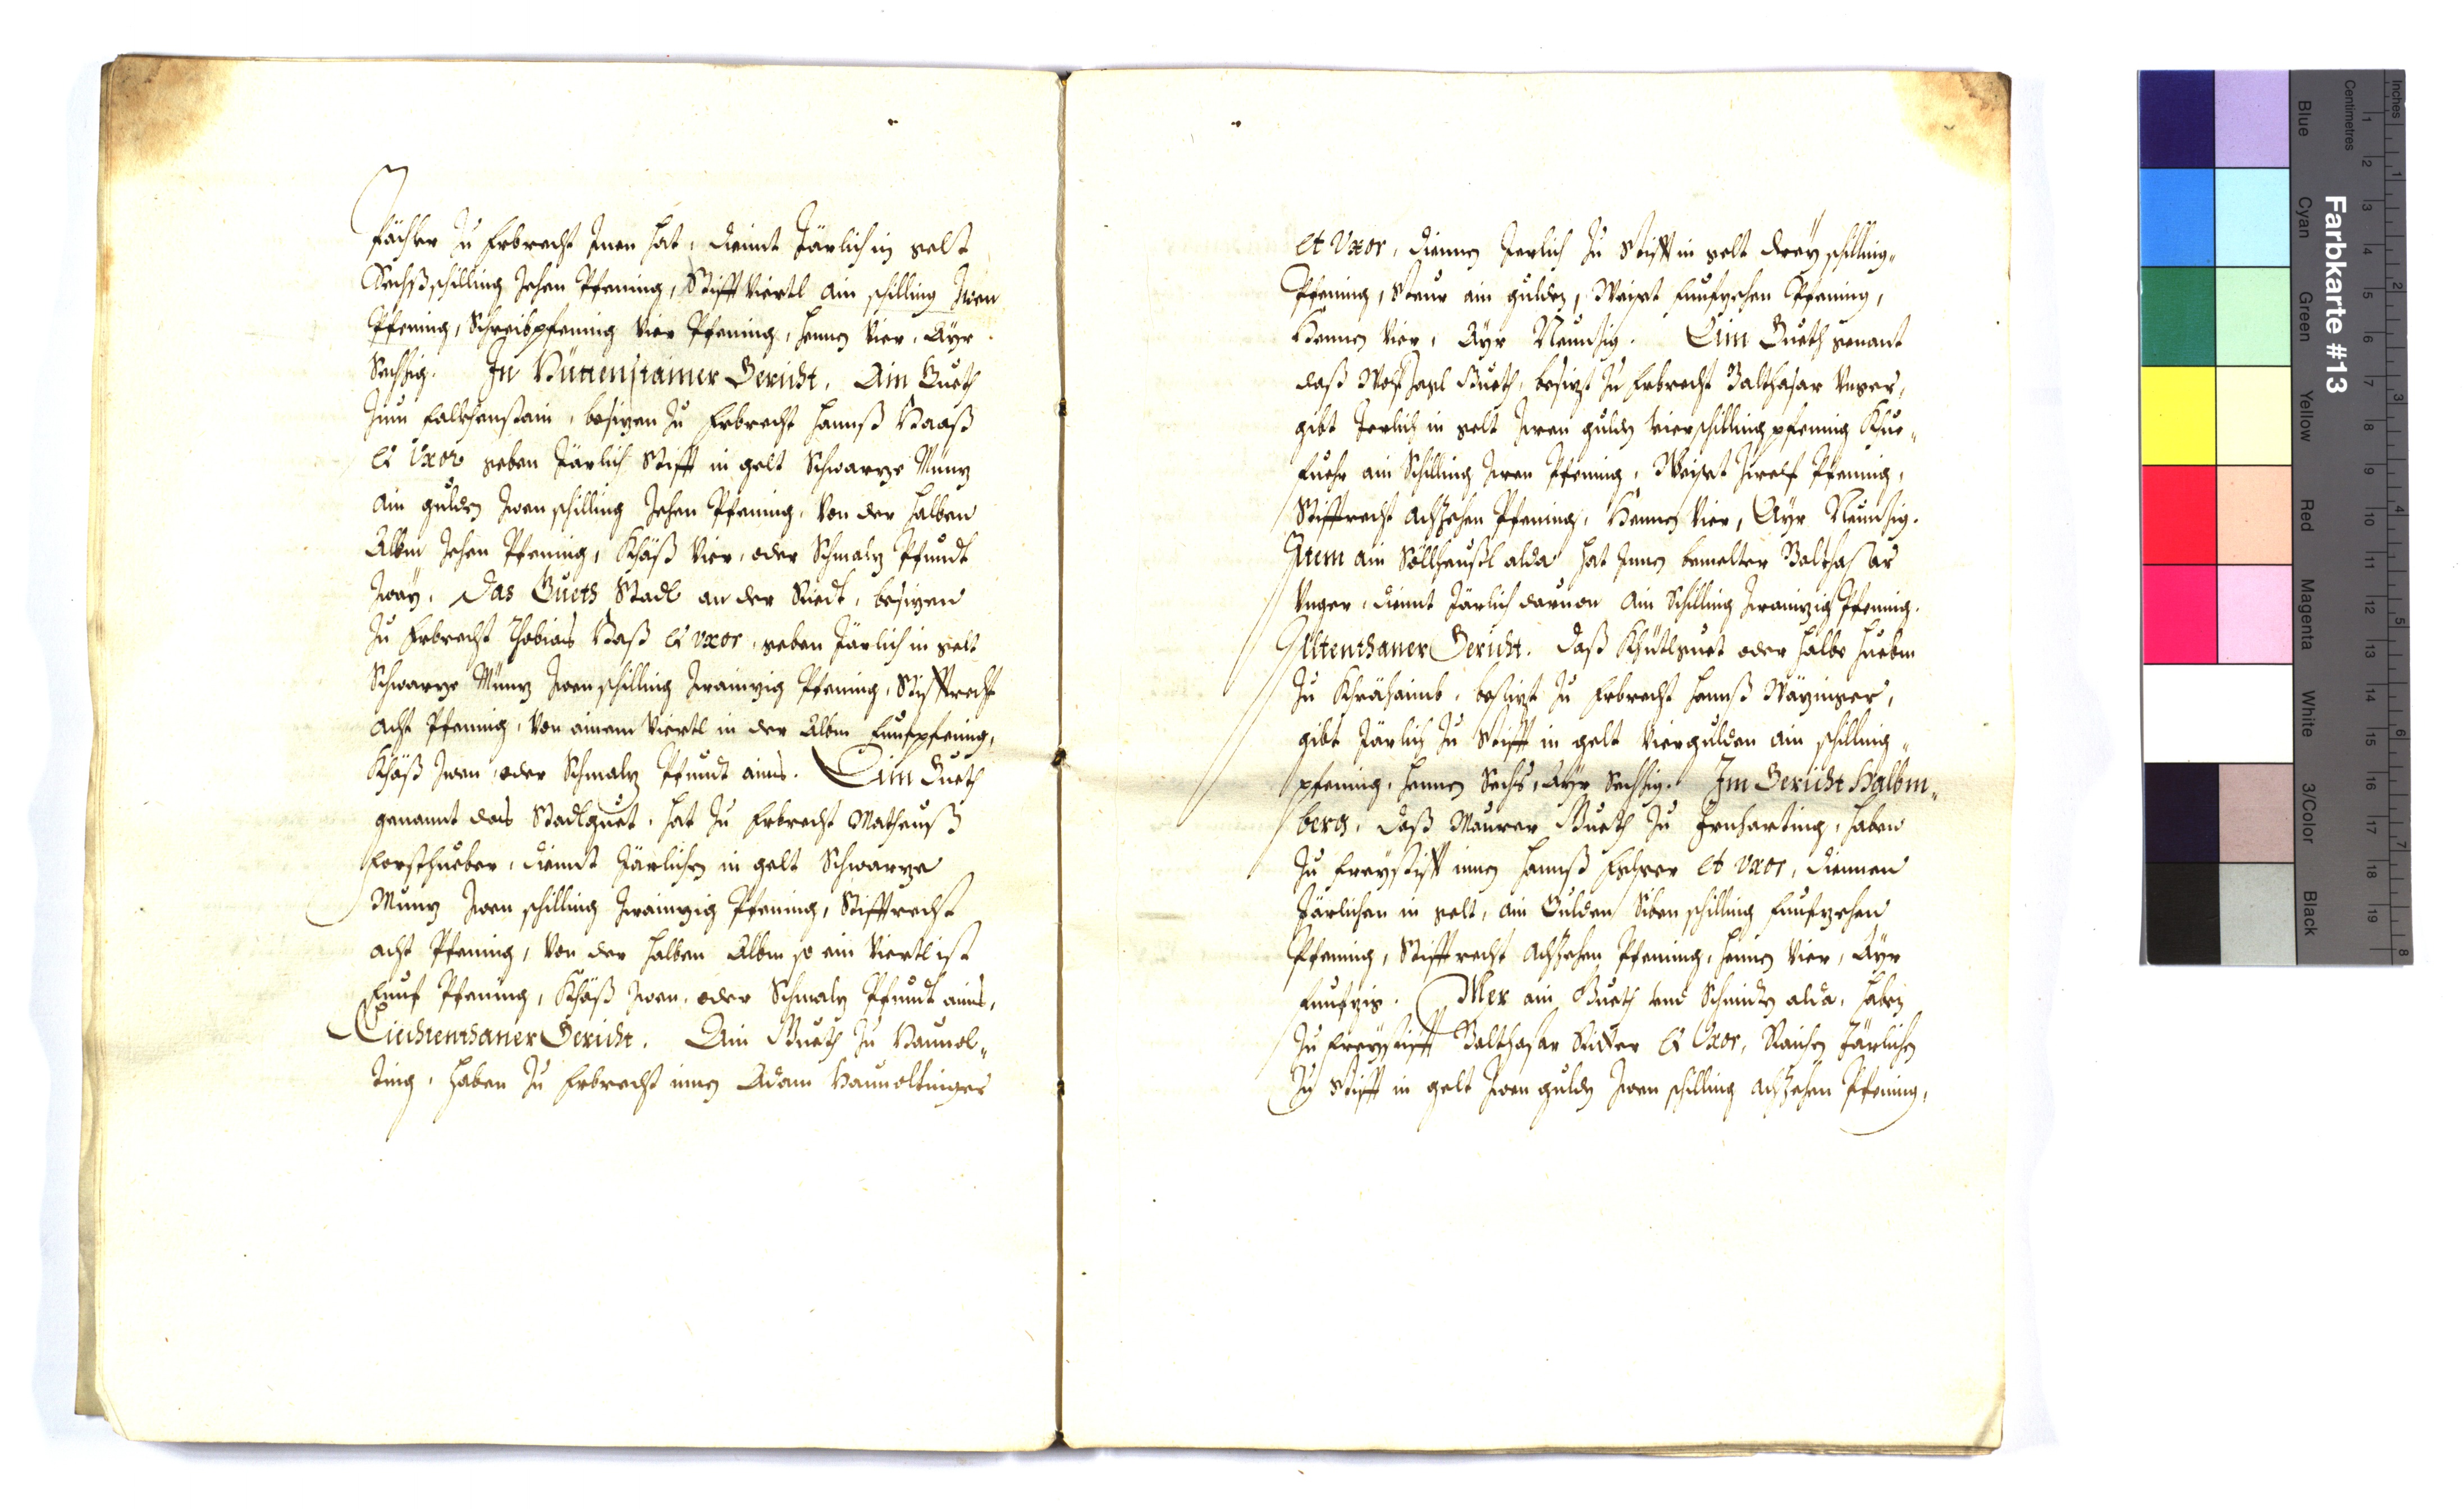 fächler zu Erbrecht Innen hat, dienntt Järlich in gelt
Sechsschilling zehen Pfening, Stifft Viertl ain schilling zwen
Pfening, Schreibpfening vier Pfening, hennen vier, Ayr
Sechzig. In Hüttenstainer Gericht. Ain Gueth
zum falckhenstain, besizen zu Erbrecht Hannß Haaß
et Uxor geben Järlich Stifft in gelt Schwarze Münz
ain gulden zwen schilling zehen Pfening, Von der halben
Albm zehen Pfening, Khäß vier, oder Schmalz Pfundt
zway. Das Gueth Stadl an der Riedt, besizen
zu Erbrecht Thobias Haß et uxor, geben Järlich in gelt
Schwarze Münz zwen schilling zwainzig Pfening, Stifftrecht
acht Pfening, Von ainem Viertl in der Albm Funfpfening,
Khäß zwen, oder Schmalz Pfundt ains. Ain Gueth
genannt das Stadlguet, hat zu Erbrecht Matheuß
Forsthueber, diendt Järlichen in gelt Schwarze
Münz zwen schilling zwainzig Pfening, Stifftrecht
acht Pfening, Von der halben Albm so ein Viertl ist
Funf Pfening, Khäß zwen, oder Schmalz Pfundt ains,
Liechtenthaner Gericht. Ain Gueth zu Haunol„
ting, haben zu Erbrecht innen Adam Haunoltinger
et Uxor, diennen Jerlich zu Stifft in gelt drey schilling„
Pfening, Steur ain gulden, Weiset Funfzehen Pfening,
Hennen vier, Ayr Neunzig. Ain Gueth genant
daß Gueth, besizt zu Erbrecht Balthasar Unger,
gibt Jerlich in gelt zwen gulden vierschilling pfening Khue„
fuehr ain Schilling zwen Pfening, Weiset zwelf Pfening,
Stifftrecht achzehen Pfening, Hennen vier, Ayr Neunzig.
Item ain Söllheußl alda hat Innen bemelter Balthasar
Unger, dienntt Järlich darvon ain Schilling zwainzig Pfening.
Altenthaner Gericht. Daß Khütlguet oder halbe Huebm
zu Khrähaimb, besizt zu Erbrecht Hannß Wäzinger,
gibt Järlich zu Stifft in gelt vier gulden ain schilling„
pfening, hennen Sechs, Ayr Sechzig. Im Gericht Halbm„
berg, daß Maurer Gueth zu Ernharting, haben
zu Freystifft innen Hannß et uxor, diennen
Järlichen in gelt, ain Gulden Siben schilling Funfzehen
Pfening, Stifftrecht achzehen Pfening, hennen vier, Ayr
Funfzig. Mer ain Gueth und Schmidten alda, haben
zu Freystifft Balthasar et Uxor, Raichen Järlichen
zu Stifft in gelt zwen gulden zwen schilling achzehen Pfening,
Farbkarte #13
Inches
Centimetres
1 2 3 4 5 6 7 8 9 10 11 12 13 14 15 16 17 18 19
1 2 3 4 5 6 7 8
Blue
Cyan
Green
Yellow
Red
Magenta
White
3/Color
Black